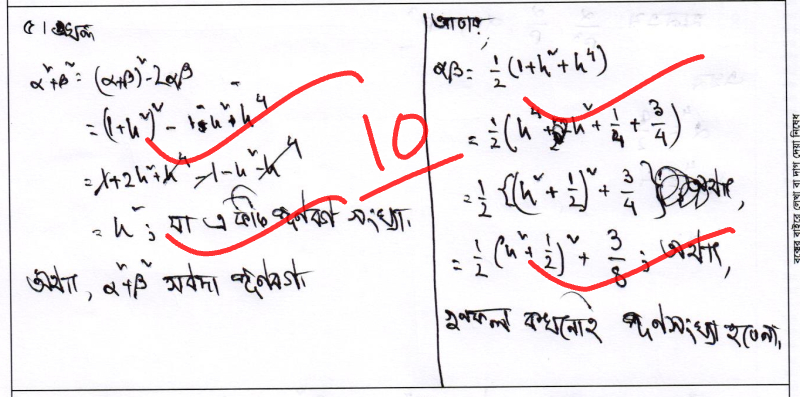 ৫। এখন
α²+β² = (α+β)²-2αβ
= (1+h²)² - 1+h²+h⁴
= 1+2h²+h⁴-1-h²-h⁴
= h²; যা একটি পূর্ণবর্গ সংখ্যা.
অর্থাৎ, α²+β² সর্বদা পূর্ণবর্গ.
10
আবার,
αβ = 1/2 (1+h²+h⁴)
= 1/2 (h⁴ + h² + 1/4 + 3/4)
= 1/2 {(h² + 1/2)² + 3/4} অর্থাৎ,
= 1/2 (h² + 1/2)² + 3/8; অর্থাৎ,
গুণফল কখনোই পূর্ণসংখ্যা হবেনা.
বক্সের বাইরে লেখা বা দাগ দেয়া নিষেধ